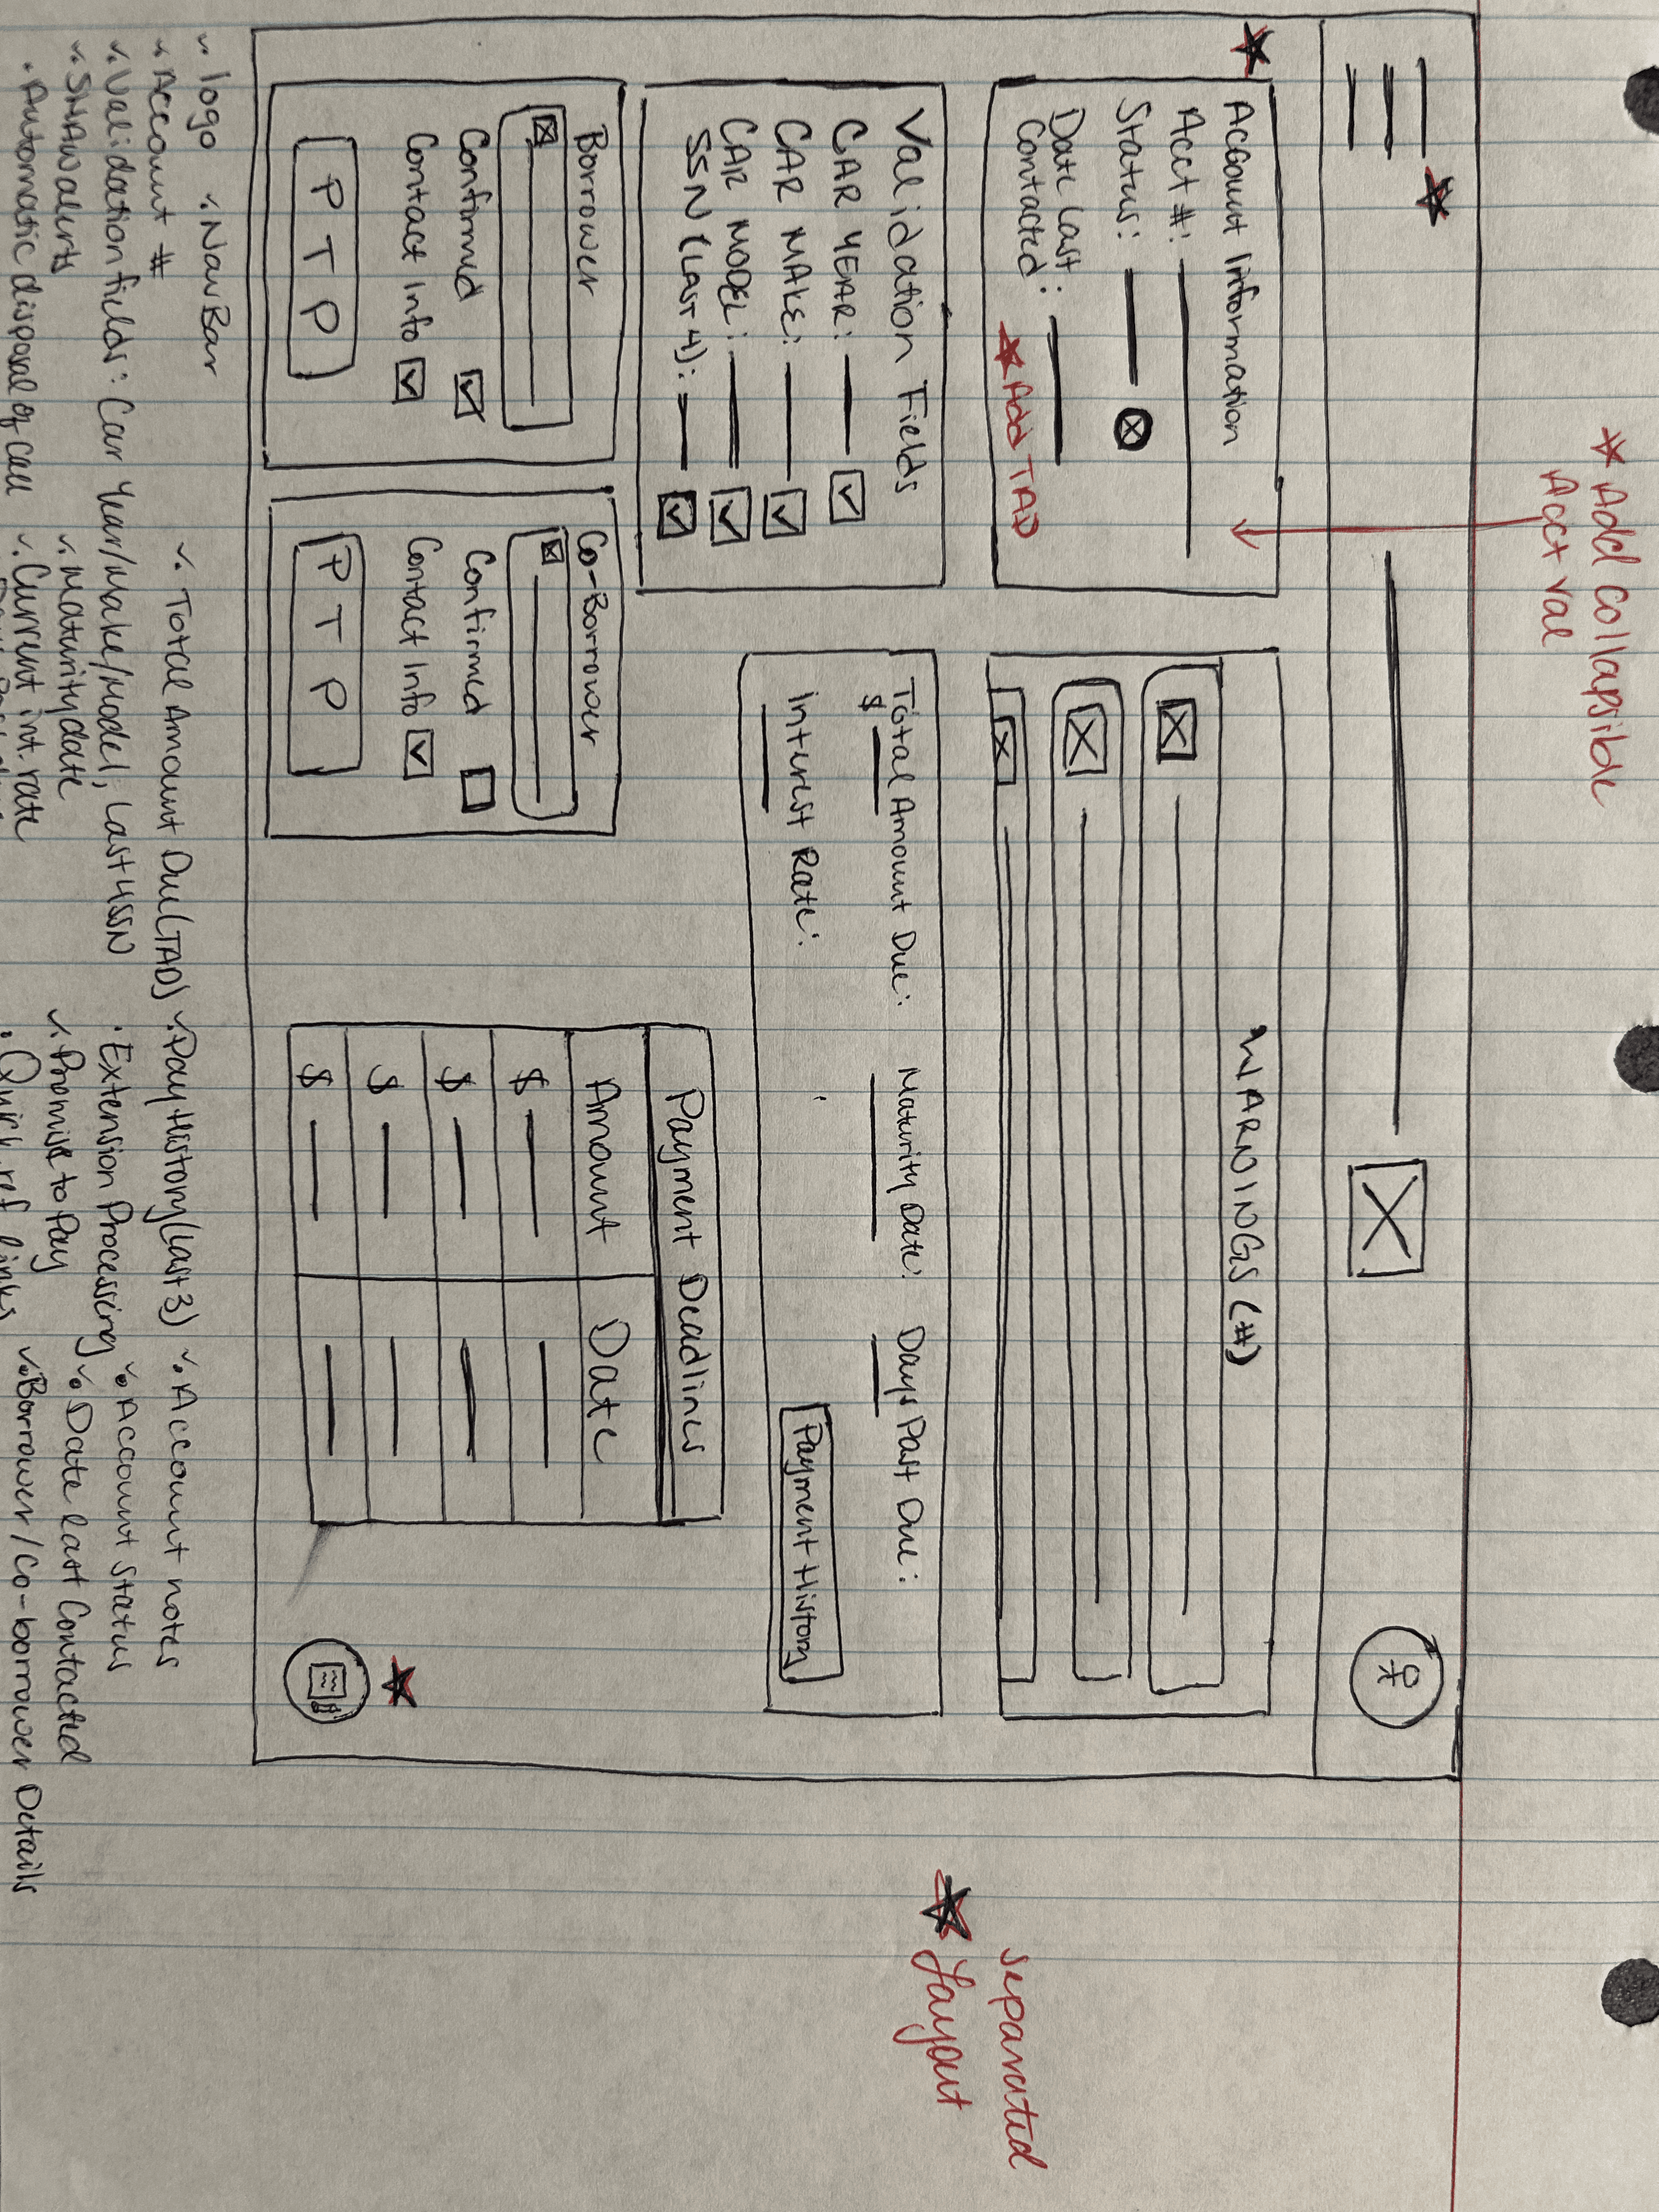 ★ Add collapsible
Acct val
WARNINGS (#)
Account Information
Acct #:
Status:
Date Last
Contacted:
★ Add TAD
Validation Fields
CAR YEAR:
CAR MAKE:
CAR MODEL:
SSN (Last 4):
Total Amount Due:
$
Maturity Date:
Days Past Due:
Interest Rate:
Payment History
★ separated
Layout
Borrower
Confirmed
Contact Info
PTP
Co-Borrower
Confirmed
Contact Info
PTP
Payment Deadlines
Amount Date
$
$
$
$
✓. logo ✓. NavBar
✓. Account #
✓. Validation fields: Car Year/Make/Model, Last 4 SSN
✓. SHAW alerts
. Automatic disposal of call
✓. Total Amount Due (TAD)
✓. maturity date
✓. Current int. rate
✓. Pay History (last 3)
. Extension Processing
✓. Promise to Pay
. Quick ref links
✓. Account notes
✓. Account status
✓. Date last Contacted
✓. Borrower/Co-borrower Details